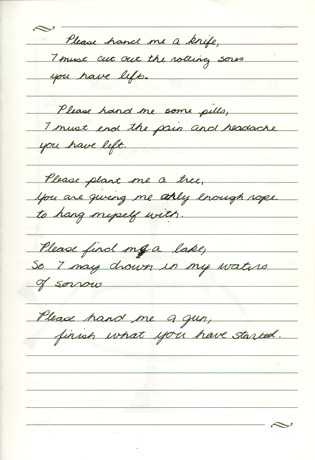 Please hand me a knife,
I must cut out the rotting sores
you have left.
Please hand me some pills,
I must end the pain and headache
you have left.
Please plant me a tree,
You are giving me only enough rope
to hang myself with.
Please find me a lake,
So I may drown in my waters
of sorrow
Please hand me a gun,
finish what you have started.